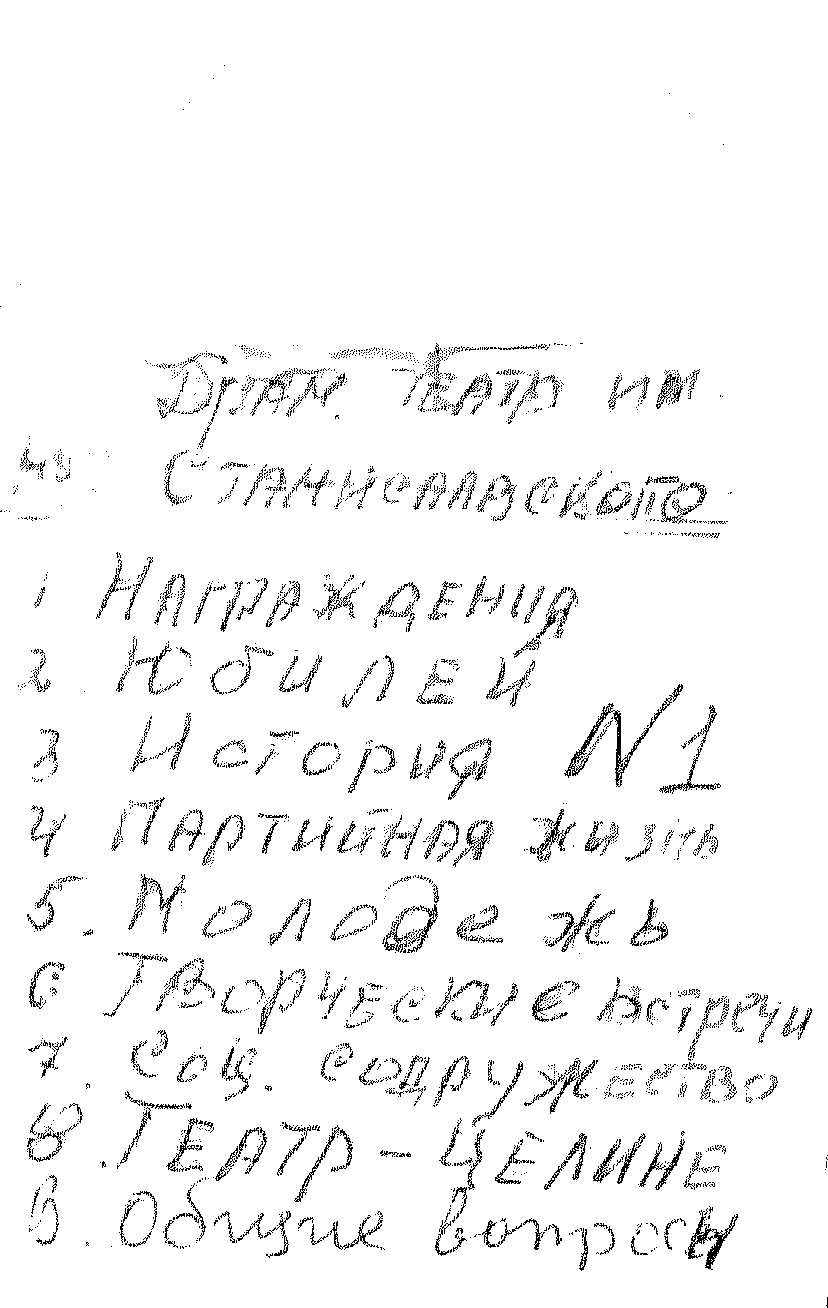 Драм. театр им.
Станиславского
1 Награждения
2. Юбилей
3 История N1
4 Партийная жизнь
5. Молодежь
6 Творческие встречи
7. Соц. содружество
8. Театр-целине
Общие вопросы